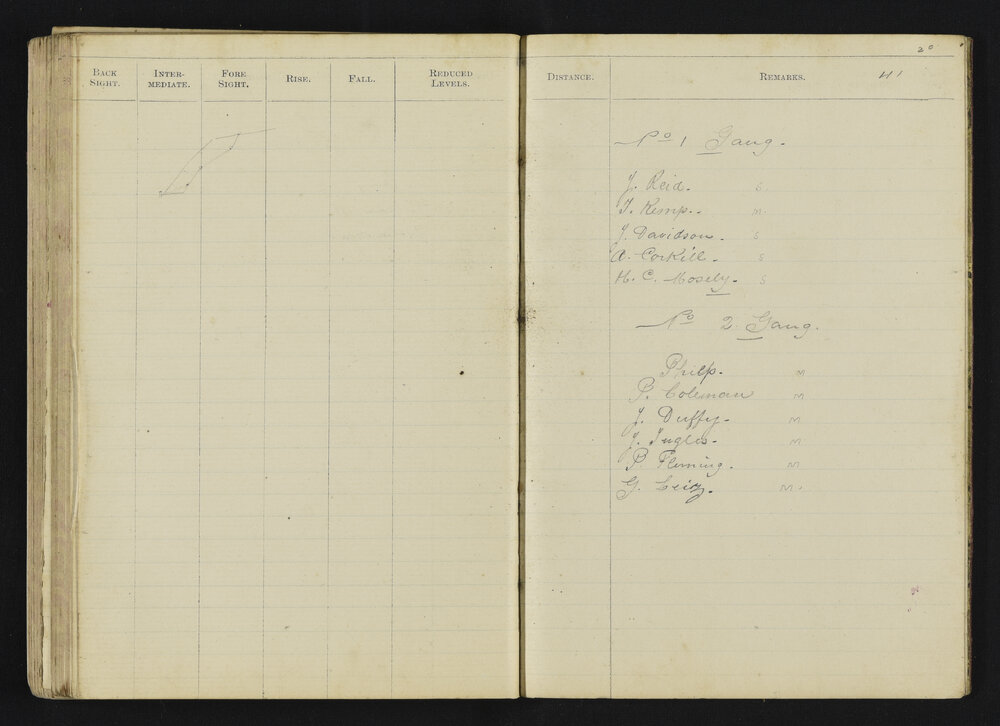 BACK SIGHT. INTER-MEDIATE. FORE SIGHT. RISE. FALL. REDUCED LEVELS.
20
DISTANCE. REMARKS. 41
No 1 Gang.
J. Reid. S
T. Kemp. M
J. Davidson. S
A. Corkill. S
H. C. Mosely. S
No 2 Gang.
Philp. M
P. Coleman M
J. Duffy. M
J. Inglis. M
P. Fleming. M
G. M